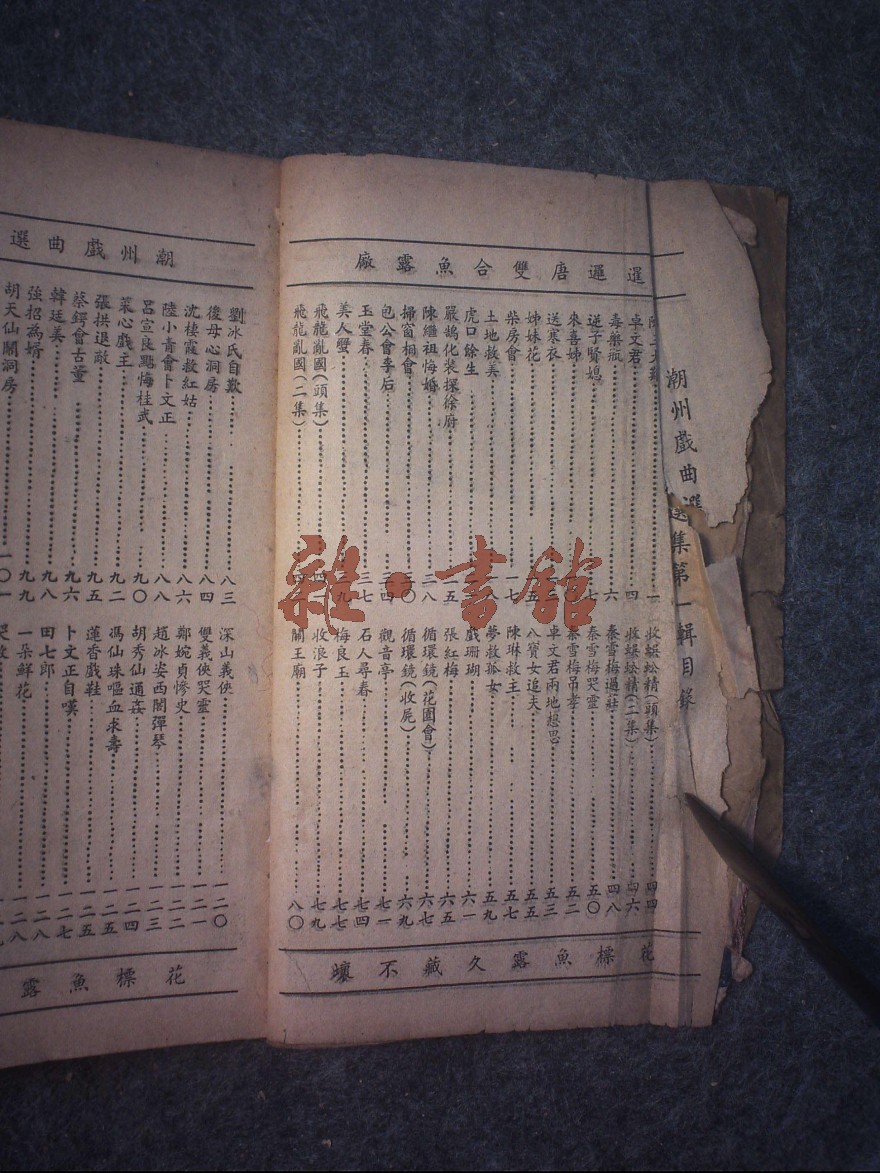 暹邏唐雙合魚露廠
潮州戲曲選集第一輯目錄
卓文君
毒藥瓶 六
逆子賢媳 七
來喜姊
送寒衣
姊妹花 五
柴房會 一七
土地救美 一八
虎口餘生
嚴鵠化裝探徐府 二五
陳繼祖悔婚 二八
掃窗相會 三〇
包公會李后 三四
玉堂春 三七
美人蟹 三九
飛龍亂國(頭集)
飛龍亂國(二集)
收蜈蚣精(頭集) 四四
收蜈蚣精(二集) 四六
秦雪梅過社 四八
秦雪梅哭靈 五〇
秦雪梅吊孝 五二
卓文君兩地想思 五三
八寶女追夫 五五
陳琳救主 五七
夢救孤女 五九
戲珊瑚 六一
張紅梅 六五
循環鏡(花園會) 六七
循環鏡(收屍) 六九
觀音亭 七一
石人尋春 七四
梅良玉 七七
收浪子 七九
關王廟 八〇
花標魚露久藏不壞
潮州戲曲選
劉冰氏自歎 八三
後母心洞房 八四
沈棲霞救紅姑 八六
陸小青會卜文正 八八
呂宣良颺悔桂武 九〇
菜心戲主 九二
張拱退敵 九五
蔡鍔會古董 九六
韓廷美 九八
強招為婿 九九
胡天仙鬧洞房 一〇一
深山義俠 一二〇
雙義俠哭靈 一二一
鄭婉貞慘史 一二二
趙冰姿西閣彈琴 一二三
胡秀仙通姦 一二四
馮仙珠嘔血求壽 一二五
蓮香戲鞋 一二五
卜文正自嘆 一二七
田七郎 一二八
一朵鮮花 一二八
花標魚露
雜·書館